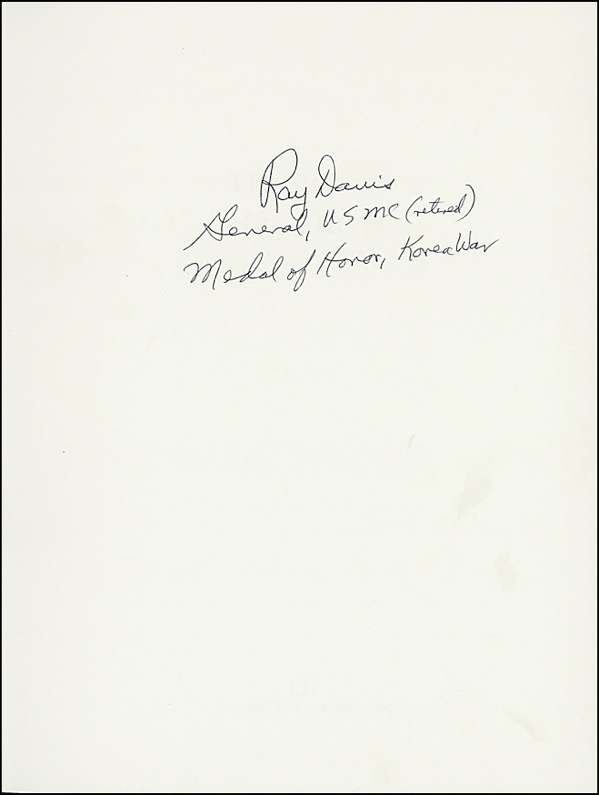 Ray Davis
General, USMC (retired)
Medal of Honor, Korea War